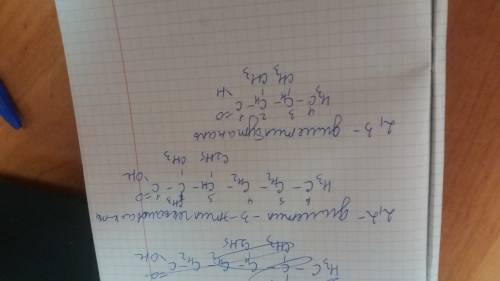 H₃C - C - CH - CH₂ - CH₂ - C=O
CH₃ C₂H₅ OH
2,2 - диметил - 3 - этилгексановая к-ть
6 5 4 3 CH₃ 1
H₃C - CH₂ - CH₂ - CH - C - C=O
C₂H₅ CH₃ OH
2,3 - диметилбутаналь
4 3 2 1
H₃C - CH - CH - C=O
CH₃ CH₃ H